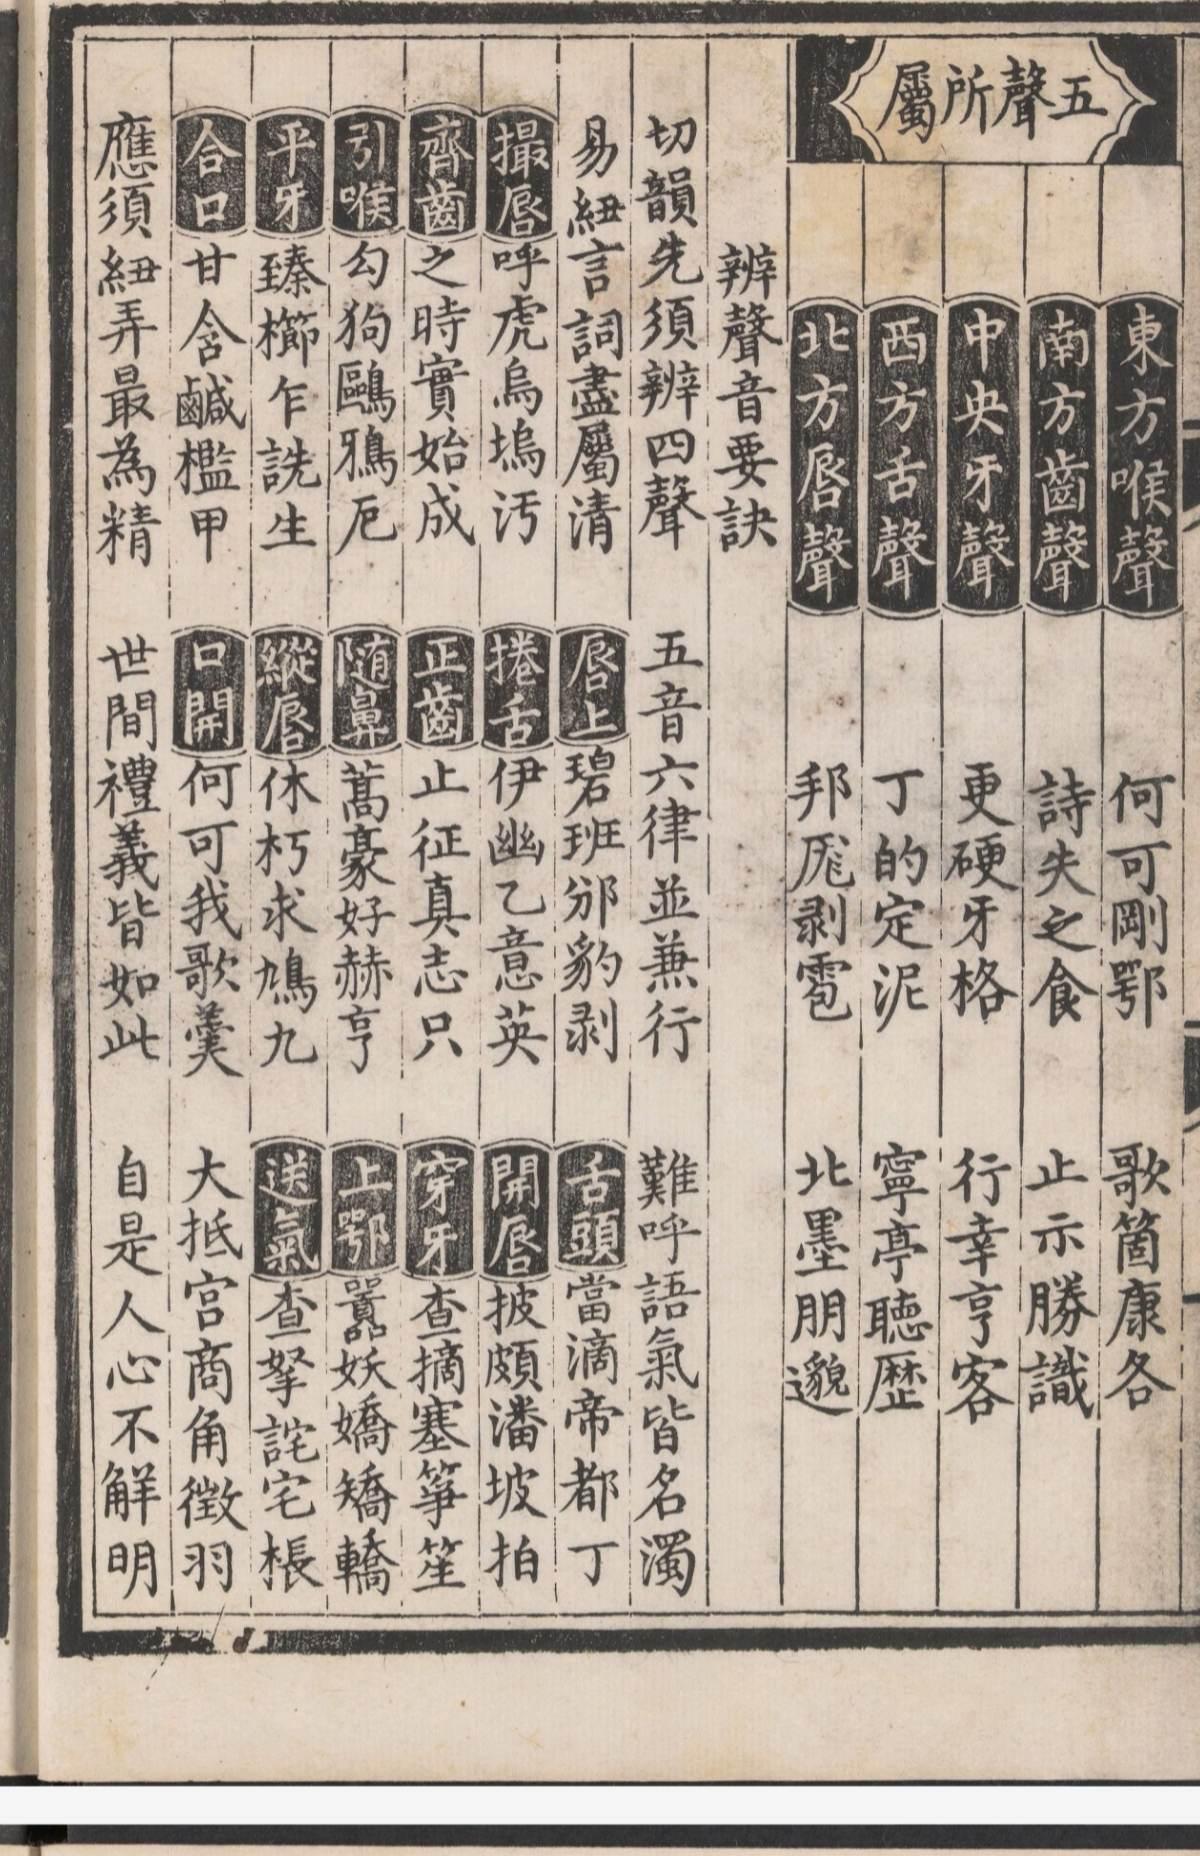 五聲所屬
東方喉聲 何可剛鄂 歌箇康各
南方齒聲 詩失之食 止示勝識
中央牙聲 更硬牙格 行幸亨客
西方舌聲 丁的定泥 寧亭聽歷
北方唇聲 邦尨剥雹 北墨朋邈
辨聲音要訣
切韻先須辨四聲 五音六律並兼行 難呼語氣皆名濁
易紐言詞盡屬清 唇上碧班邠豹剥 舌頭當滴帝都丁
撮唇呼虎烏塢污 捲舌伊幽乙意英 開唇披頗潘坡拍
齊齒之時實始成 正齒止征真志只 穿牙查摘塞箏笙
引喉勾狗鷗鴉厄 随鼻蒿豪好赫亨 上鄂囂妖嬌矯轎
平牙臻櫛乍詵生 縱唇休朽求鳩九 送氣查拏詫宅棖
合口甘含鹹檻甲 口開何可我歌羹 大抵宮商角徵羽
應須紐弄最為精 世間禮義皆如此 自是人心不解明